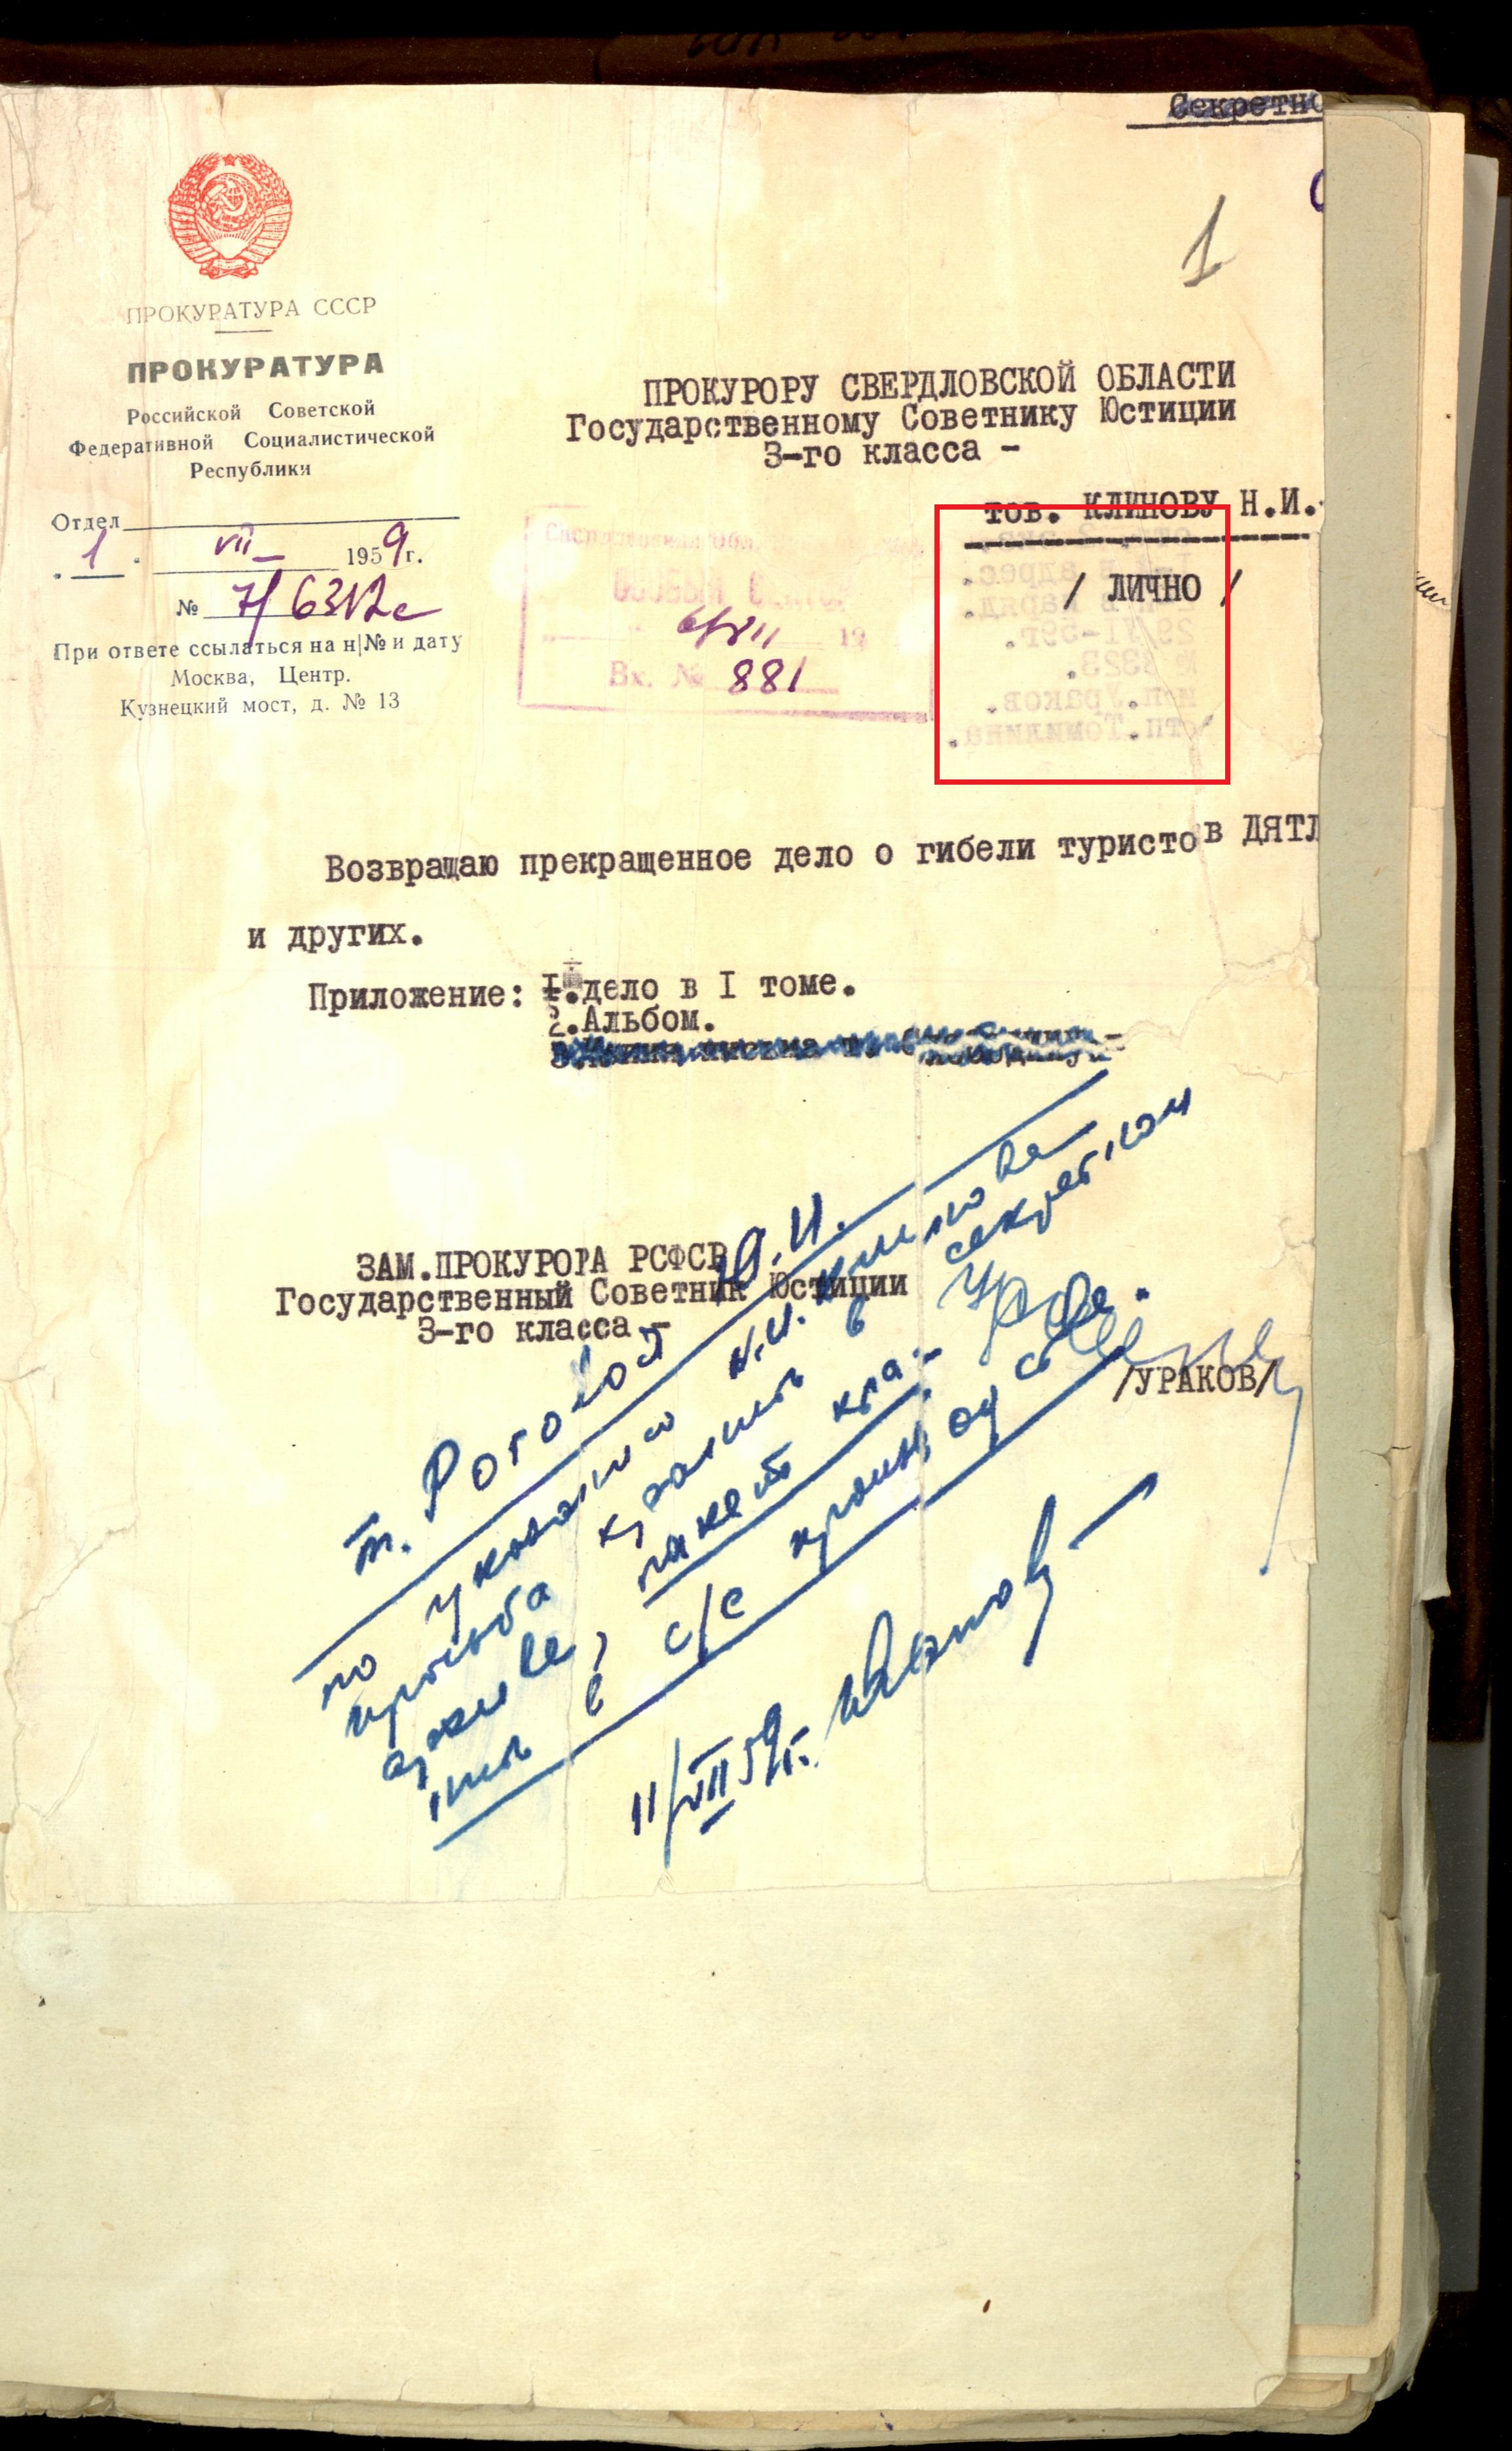 Секретно
1
ПРОКУРАТУРА СССР
ПРОКУРАТУРА
Российской Советской
Федеративной Социалистической
Республики
Отдел
1 VII 1959 г.
№ 7/6312с
При ответе ссылаться на н/№ и дату
Москва, Центр.
Кузнецкий мост, д. № 13
ПРОКУРОРУ СВЕРДЛОВСКОЙ ОБЛАСТИ
Государственному Советнику Юстиции
3-го класса -
тов. КЛИНОВУ Н.И.
/ ЛИЧНО /
6/VII 19
Вх. № 881
в адрес.
в наряд.
29/VI-59г.
№ 3323.
и п. Ураков.
отп. Томилина.
Возвращаю прекращенное дело о гибели туристов ДЯТЛ
и других.
Приложение: I. дело в I томе.
2. Альбом.
ЗАМ.ПРОКУРОРА РСФСР
Государственный Советник Юстиции
3-го класса -
/УРАКОВ/
по указанию Н.И. Клинова
просьба хранить в секретном
архиве, пакет
в с/с
11/VII 59г.